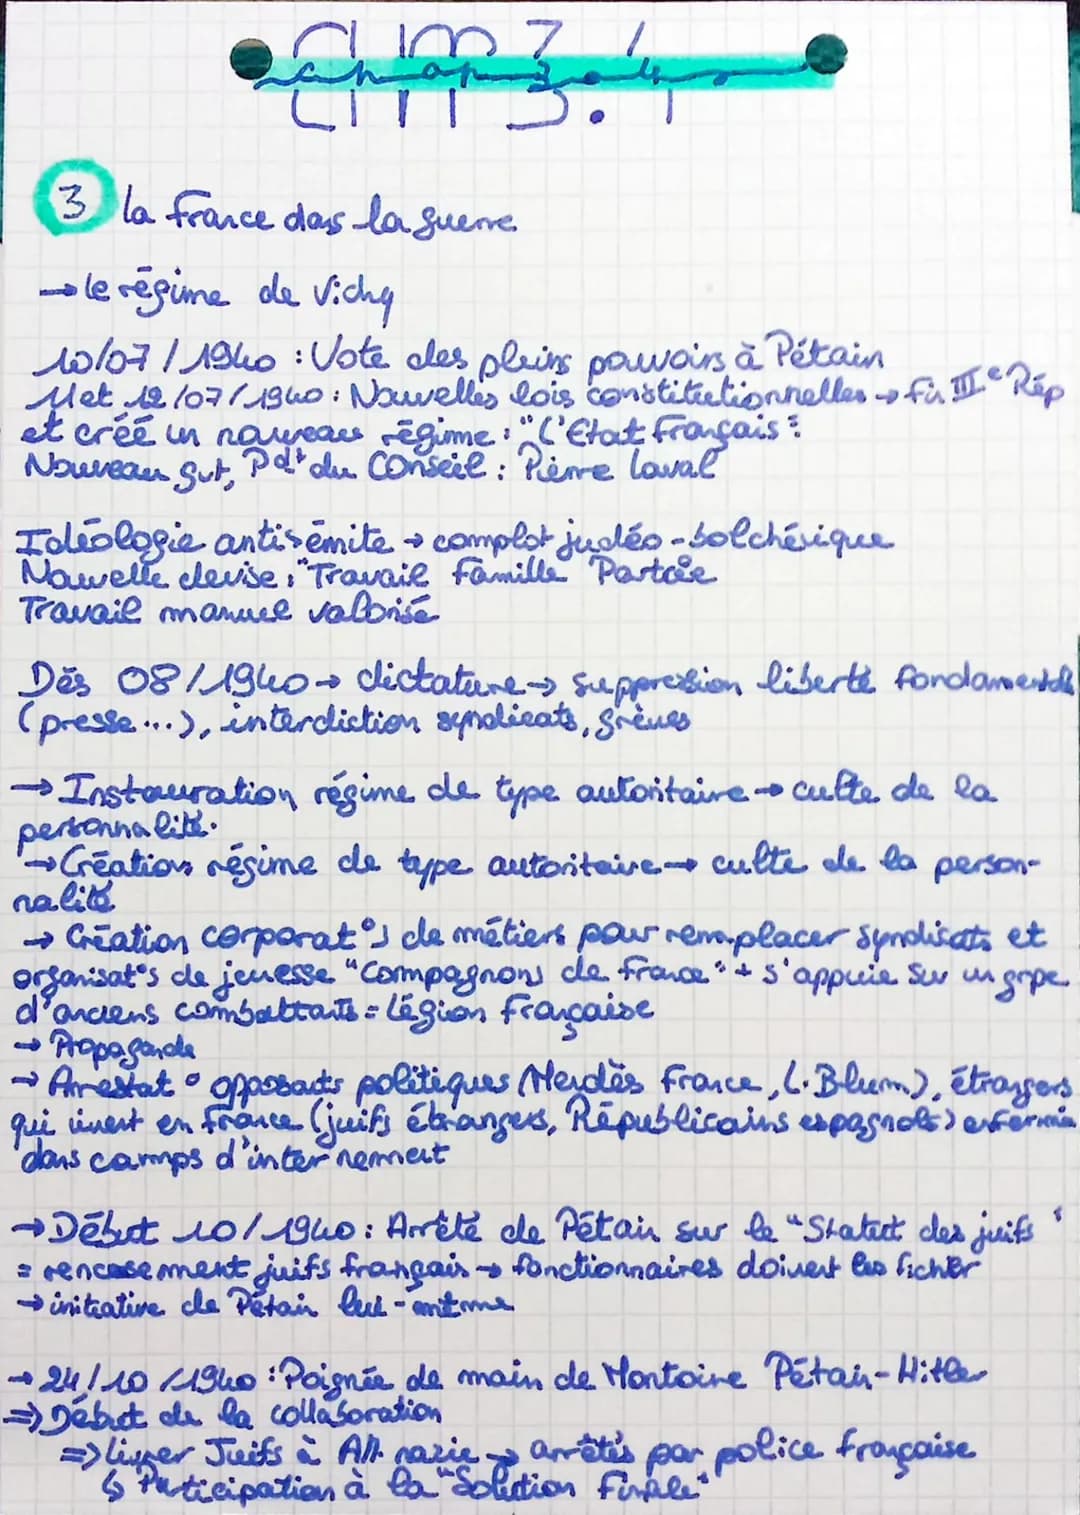 chap 3.4
CHAP 3.4
3 la france dans la guerre
→ le régime de Vichy
10/07/1940 : Vote des pleins pouvoirs à Pétain
11 et 12/07/1940 : Nouvelles lois constitutionnelles → fin IIIe Rép
et créé un nouveau régime : "L'Etat Français".
Nouveau gvt, Pdt du Conseil : Pierre Laval
Idéologie antisémite → complot judéo-bolchévique
Nouvelle devise : "Travail Famille Partrie
Travail manuel valorisé
Dès 08/1940 → dictature → suppression liberté fondamentale
(presse...), interdiction syndicats, grèves
→ Instauration régime de type autoritaire → culte de la
personnalité.
→ Création régime de type autoritaire → culte de la person-
nalité
→ Création corporat°s de métiers pour remplacer syndicats et
organisat°s de jeunesse "Compagnons de France" + s'appuie sur un grpe
d'anciens combattants = Légion Française
→ Propagande
→ Arrestat° opposants politiques (Mendès France, L. Blum), étrangers
qui vivent en France (juifs étrangers, Républicains espagnols) enfermés
dans camps d'internement
→ Début 10/1940 : Arrêté de Pétain sur le "Statut des juifs"
= recensement juifs français → fonctionnaires doivent les ficher
→ initiative de Pétain lui-même
→ 24/10/1940 : Poignée de main de Montoire Pétain-Hitler
⇒ Début de la collaboration
⇒ Livrer Juifs à All. nazie → arrêtés par police française
↳ Participation à la "Solution Finale"